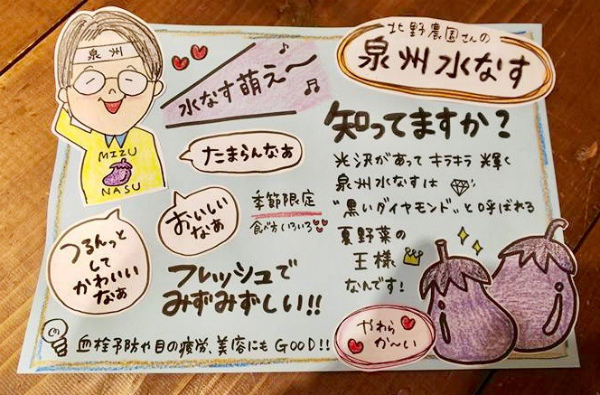 北野農園さんの
泉州水なす
泉州
MIZU
NASU
水なす萌え〜♪
♫
たまらんなぁ
おいしい
なぁ
つるんっと
して
かわいい
なぁ
季節限定
食べ方いろいろ
フレッシュで
みずみずしい!!
知ってますか?
光沢があって キラキラ 輝く
泉州水なすは
"黒いダイヤモンド"と呼ばれる
夏野菜の
王様
なんです!
やわら
か〜い
血栓予防や目の疲労、美容にも GOOD!!